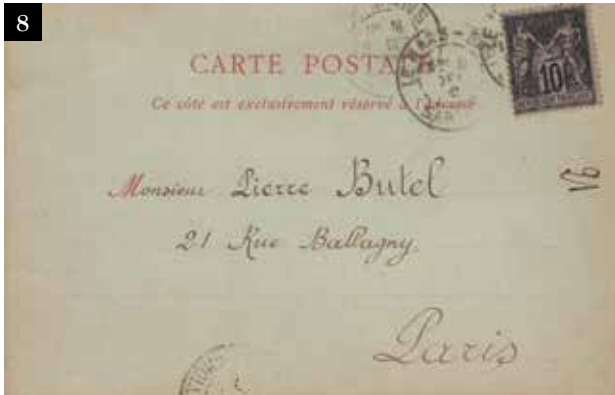 8
CARTE POSTALE
Ce côté est exclusivement réservé à l'adresse
10
Monsieur Pierre Butel
21 Rue Ballagny.
Paris